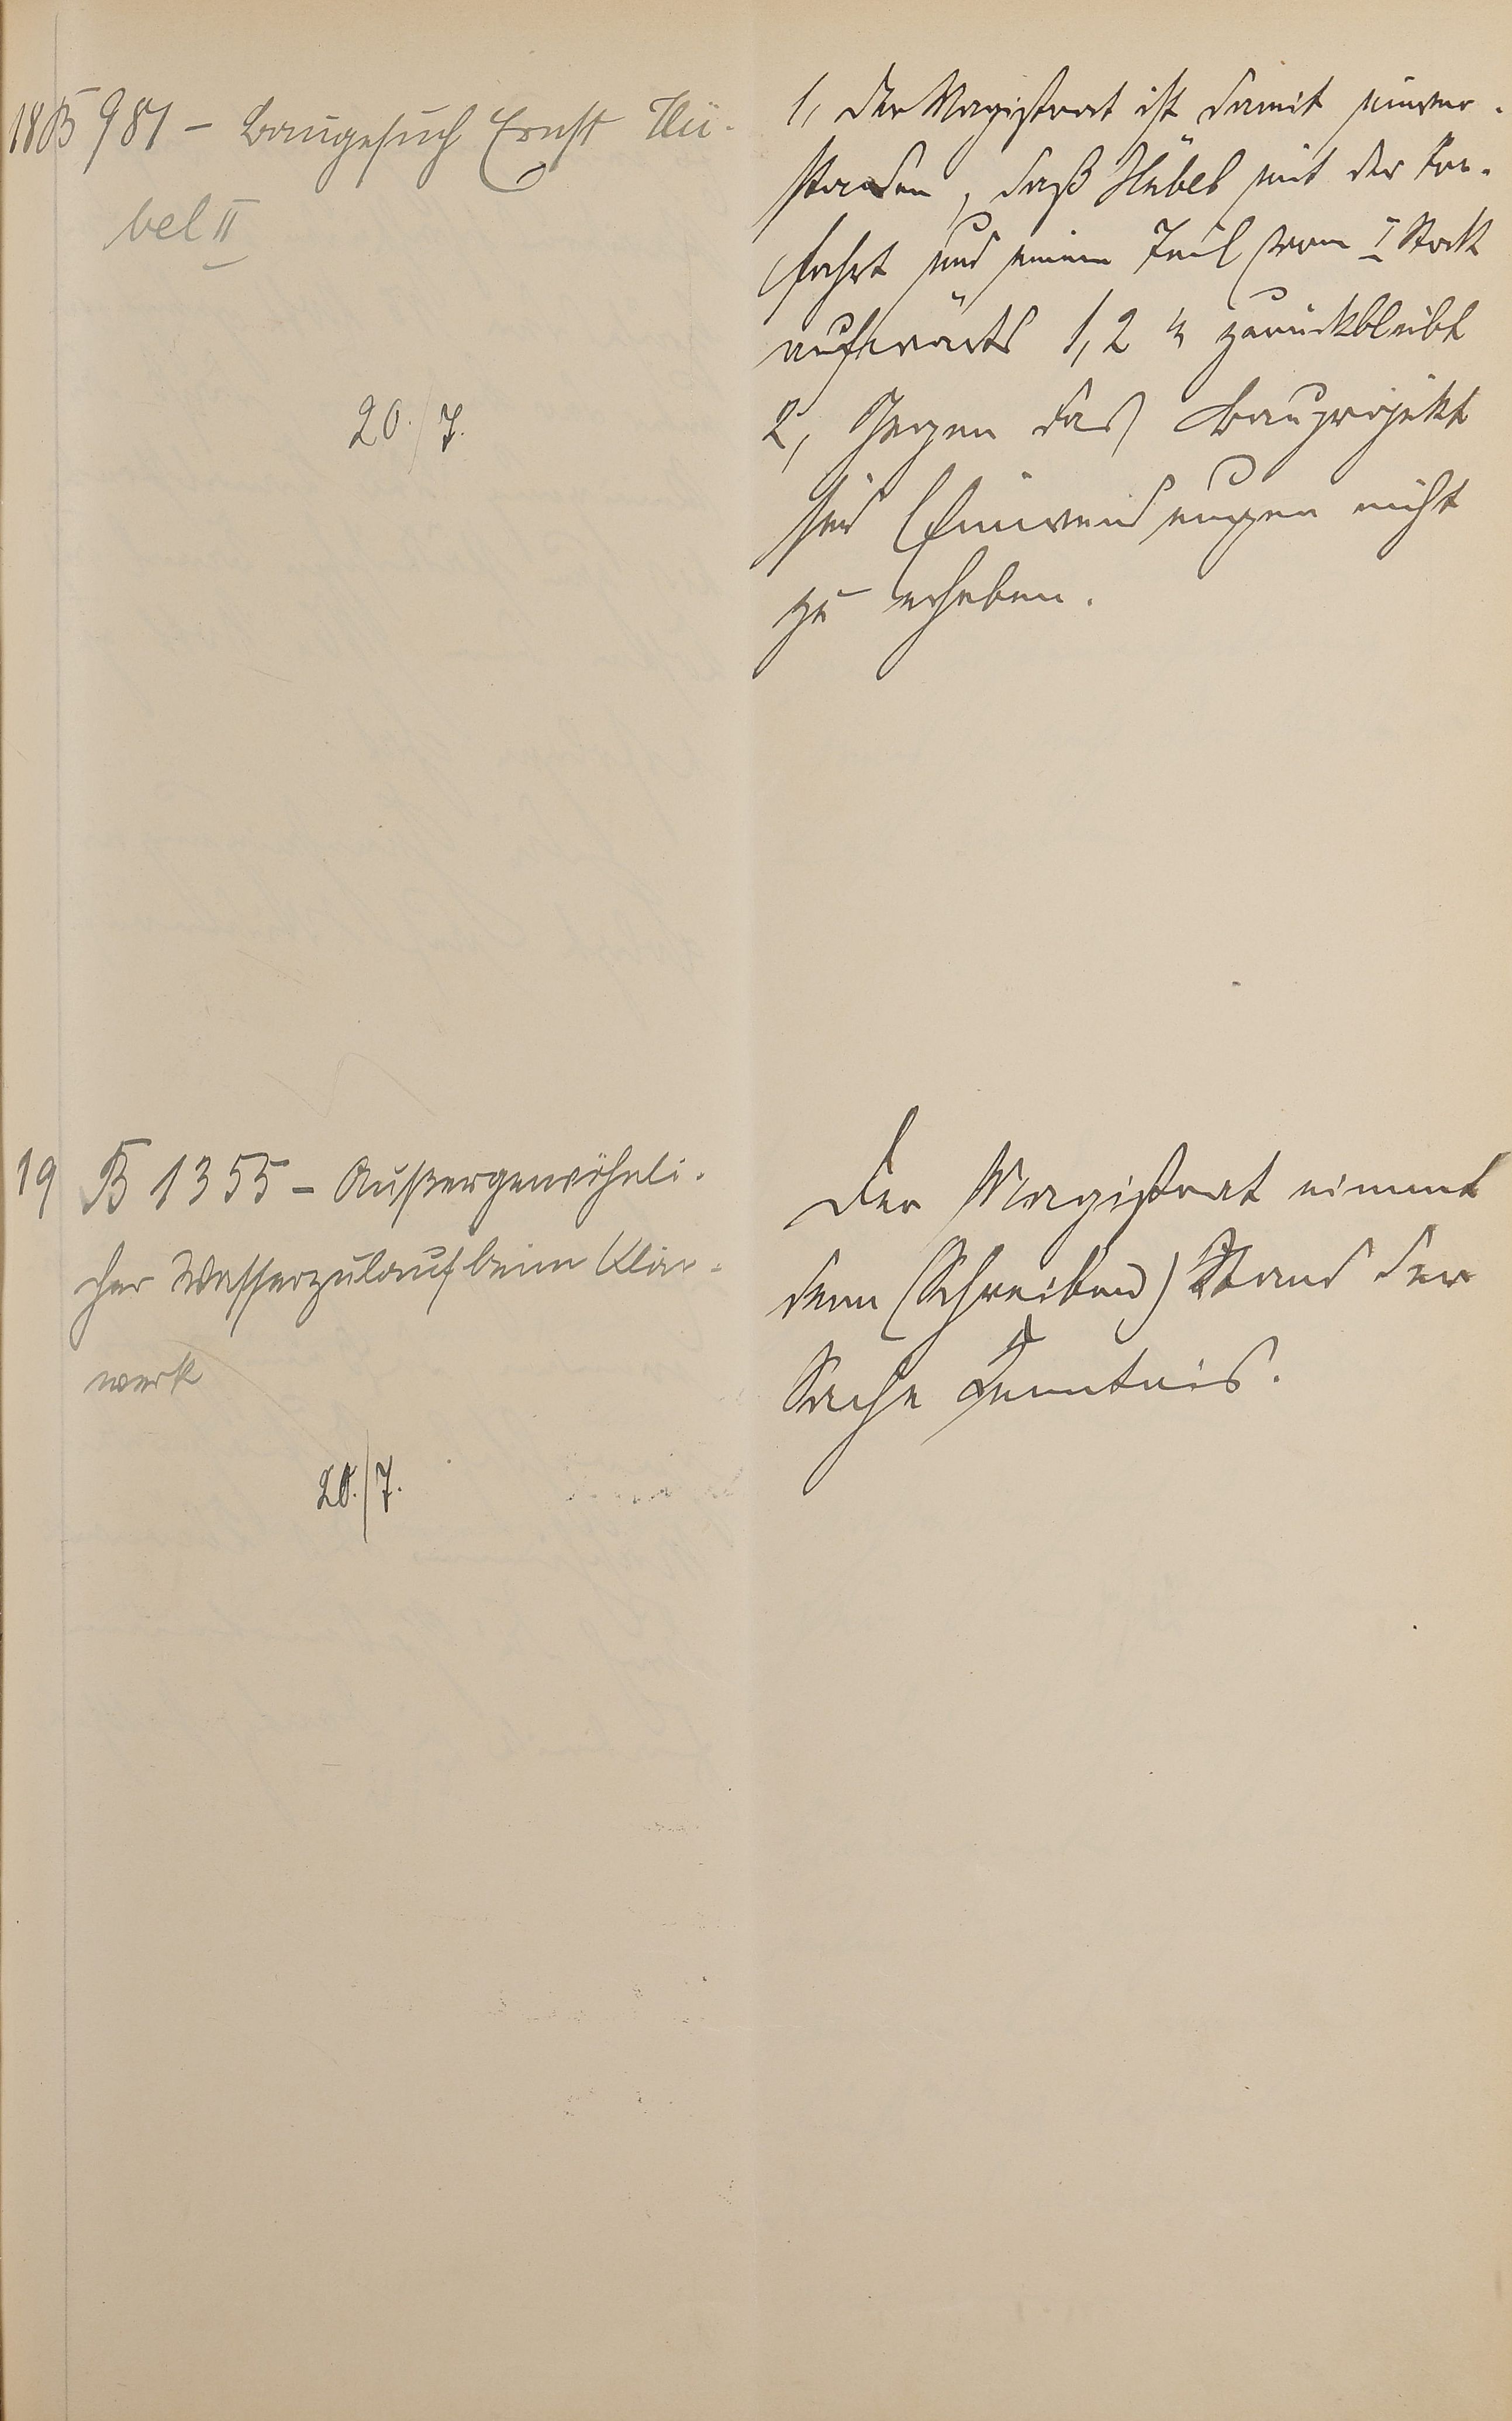 18 B 981 - Baugesuch Ernst Hü-
bel II
20./7.
1, Der Magistrat ist damit einver-
standen, daß Hübel mit der Tor-
fahrt und einem Teil vom I Stock
aufwärts 1,2 m zurückbleibt
2, Gegen das Bauprojekt
sind Einwendungen nicht
zu erheben.
19 B 1355 - Außergewöhnli-
cher Wasserzulauf beim Klär-
werk
20./7.
Der Magistrat nimmt
dem (Schreiben) Stand der
Sache Kenntnis.